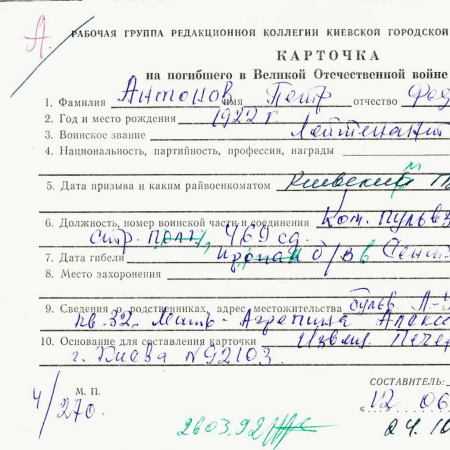 А.
РАБОЧАЯ ГРУППА РЕДАКЦИОННОЙ КОЛЛЕГИИ КИЕВСКОЙ ГОРОДСКОЙ
КАРТОЧКА
на погибшего в Великой Отечественной войне
1. Фамилия Антонов имя Петр отчество Фед
2. Год и место рождения 1922 г
3. Воинское звание Лейтенант
4. Национальность, партийность, профессия, награды
5. Дата призыва и каким райвоенкоматом Киевский
6. Должность, номер воинской части и соединения Ком. пульвз
стр. 469 сд.
7. Дата гибели б/в в Сент
8. Место захоронения
9. Сведения о родственниках, адрес местожительства бульв
кв. 32. Мать - Агрепина Алекс
10. Основание для составления карточки Извещ. Печер
г. Киева N 92103.
М. П.
СОСТАВИТЕЛЬ:
4/270.
« 12 06
2603.92
24. 10